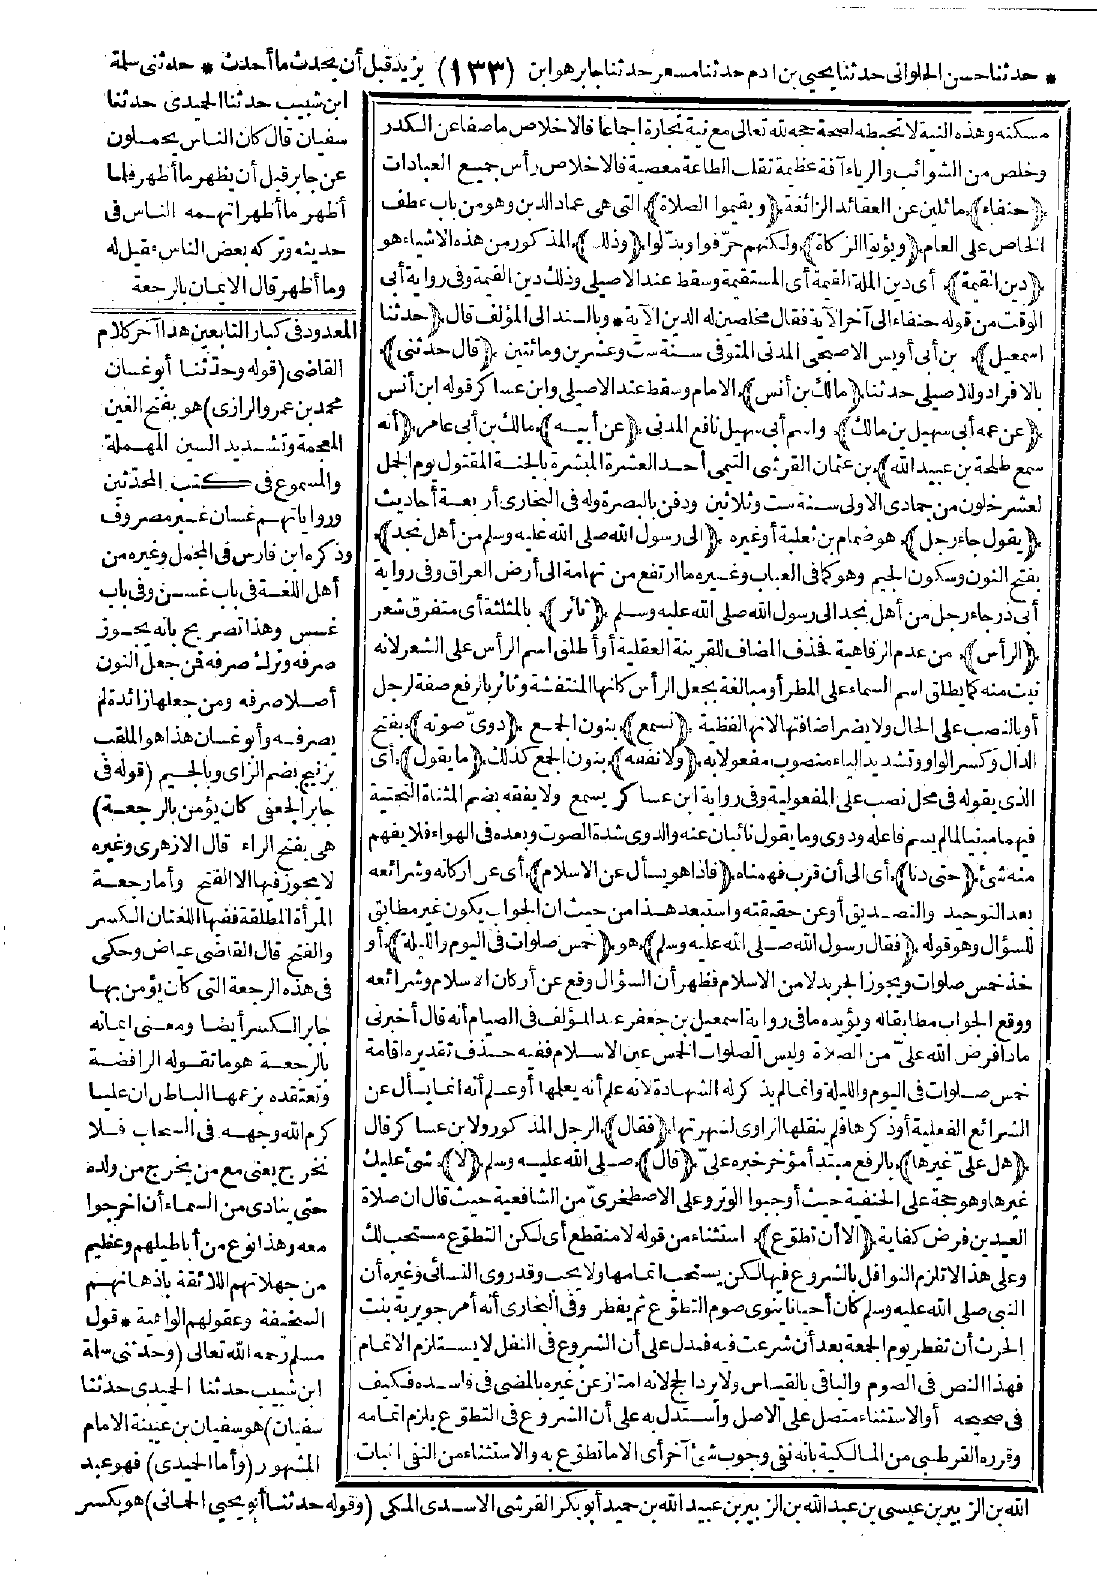 * حدثنا حسن الحلوانى حدثنا يحيى بن ادم حدثنا مسعر حدثنا جابر هو ابن (١٣٣) يزيد قبل أن يحدث ما أحدث * حدثنى سلمة
ابن شبيب حدثنا الحميدى حدثنا
سفيان قال كان الناس يحملون
عن جابر قبل أن يظهر ما أظهر فلما
أظهر ما أظهر اتهمه الناس فى
حديثه وتركه بعض الناس فقيل له
وما أظهر قال الايمان بالرجعة
مسكنه وهذه النية لا تحبطه لصحة حجه لله تعالى مع نية تجارة اجماعا فالاخلاص ما صفا عن الكدر
وخلص من الشوائب والرياء آفة عظيمة تقلب الطاعة معصية فالاخلاص رأس جميع العبادات
﴿حنفاء﴾ مائلين عن العقائد الزائغة ﴿ويقيموا الصلاة﴾ التى هى عماد الدين وهو من باب عطف
الخاص على العام ﴿ويؤتوا الزكاة﴾ ولكنهم حرّفوا وبدّلوا ﴿وذلك﴾ المذكور من هذه الاشياء هو
﴿دين القيمة﴾ أى دين الملة القيمة أى المستقيمة وسقط عند الاصيلى وذلك دين القيمة وفى رواية أبى
الوقت من قوله حنفاء الى آخر الآية فقال مخلصين له الدين الآية * وبالسند الى المؤلف قال ﴿حدثنا
اسمعيل﴾ بن أبى أويس الاصبحى المدنى المتوفى سنة ست وعشرين ومائتين ﴿قال حدثنى﴾
بالافراد وللاصيلى حدثنا ﴿مالك بن أنس﴾ الامام وسقط عند الاصيلى وابن عساكر قوله ابن أنس
﴿عن عمه أبى سهيل بن مالك﴾ واسم أبى سهيل نافع المدنى ﴿عن أبيه﴾ مالك بن أبى عامر ﴿أنه
سمع طلحة بن عبيد الله﴾ بن عثمان القرشى التيمى أحد العشرة المبشرة بالجنة المقتول يوم الجمل
لعشر خلون من جمادى الاولى سنة ست وثلاثين ودفن بالبصرة وله فى البخارى أربعة أحاديث
﴿يقول جاء رجل﴾ هو ضمام بن ثعلبة أو غيره ﴿الى رسول الله صلى الله عليه وسلم من أهل نجد﴾
بفتح النون وسكون الجيم وهو كما فى العباب وغيره ما ارتفع من تهامة الى أرض العراق وفى رواية
أبى ذر جاء رجل من أهل نجد الى رسول الله صلى الله عليه وسلم ﴿ثائر﴾ بالمثلثة أى متفرق شعر
﴿الرأس﴾ من عدم الرفاهية فحذف المضاف للقرينة العقلية أو أطلق اسم الرأس على الشعر لانه
نبت منه كما يطلق اسم السماء على المطر أو مبالغة بجعل الرأس كانها المنتفشة وثائر بالرفع صفة لرجل
أو بالنصب على الحال ولا يضر اضافتها لانها لفظية ﴿نسمع﴾ بنون الجمع ﴿دوىّ صوته﴾ بفتح
الدال وكسر الواو وتشديد الياء منصوب مفعولا به ﴿ولا نفقه﴾ بنون الجمع كذلك ﴿ما يقول﴾ أى
الذى يقوله فى محل نصب على المفعولية وفى رواية ابن عساكر يسمع ولا يفقه بضم المثناة التحتية
فيهما مبنيا لما لم يسم فاعله ودوى وما يقول نائبان عنه والدوى شدة الصوت وبعده فى الهواء فلا يفهم
منه شئ ﴿حتى دنا﴾ أى الى أن قرب فهمناه ﴿فاذا هو يسأل عن الاسلام﴾ أى عن اركانه وشرائعه
بعد التوحيد والتصديق أو عن حقيقته واستبعد هذا من حيث ان الجواب يكون غير مطابق
للسؤال وهو قوله ﴿فقال رسول الله صلى الله عليه وسلم﴾ هو ﴿خمس صلوات فى اليوم والليلة﴾ أو
خذ خمس صلوات ويجوز الجر بدلا من الاسلام فظهر أن السؤال وقع عن أركان الاسلام وشرائعه
ووقع الجواب مطابقا له ويؤيده ما فى رواية اسمعيل بن جعفر عند المؤلف فى الصيام أنه قال أخبرنى
ماذا فرض الله علىّ من الصلاة وليس الصلوات الخمس عين الاسلام ففيه حذف تقديره اقامة
خمس صلوات فى اليوم والليلة وانما لم يذكر له الشهادة لانه علم أنه يعلمها أو علم أنه انما يسأل عن
الشرائع الفعلية أو ذكرها فلم ينقلها الراوى لشهرتها ﴿فقال﴾ الرجل المذكور ولابن عساكر قال
﴿هل علىّ غيرها﴾ بالرفع مبتدأ مؤخر خبره علىّ ﴿قال﴾ صلى الله عليه وسلم ﴿لا﴾ شئ عليك
غيرها وهو حجة على الحنفية حيث أوجبوا الوتر وعلى الاصطخرىّ من الشافعية حيث قال ان صلاة
العيدين فرض كفاية ﴿الا أن تطوّع﴾ استثناء من قوله لا منقطع أى لكن التطوّع مستحب لك
وعلى هذا لا تلزم النوافل بالشروع فيها لكن يستحب اتمامها ولا يجب وقد روى النسائى وغيره أن
النبى صلى الله عليه وسلم كان أحيانا ينوى صوم التطوّع ثم يفطر وفى البخارى أنه أمر جويرية بنت
الحرث أن تفطر يوم الجمعة بعد أن شرعت فيه فدل على أن الشروع فى النفل لا يستلزم الاتمام
فهذا النص فى الصوم والباقى بالقياس ولا يرد الحج لانه امتاز عن غيره بالمضى فى فاسده فكيف
فى صحيحه أو الاستثناء متصل على الاصل واستدل به على أن الشروع فى التطوّع يلزم اتمامه
وقرره القرطبى من المالكية بانه نفى وجوب شئ آخر أى الا ما تطوّع به والاستثناء من النفى اثبات
المعدود فى كبار التابعين هذا آخر كلام
القاضى (قوله وحدّثنا أبو غسان
محمد بن عمرو الرازى) هو بفتح الغين
المعجمة وتشديد السين المهملة
والمسموع فى كتب المحدّثين
ورواياتهم غسان غير مصروف
وذكره ابن فارس فى المجمل وغيره من
أهل اللغة فى باب غسن وفى باب
غسس وهذا تصريح بانه يجوز
صرفه وترك صرفه فمن جعل النون
أصلا صرفه ومن جعلها زائدة لم
يصرفه وأبو غسان هذا هو الملقب
بزنيج بضم الزاى وبالجيم (قوله فى
جابر الجعفى كان يؤمن بالرجعة)
هى بفتح الراء قال الازهرى وغيره
لا يجوز فيها الا الفتح وأما رجعة
المرأة المطلقة ففيها اللغتان الكسر
والفتح قال القاضى عياض وحكى
فى هذه الرجعة التى كان يؤمن بها
جابر الكسر أيضا ومعنى ايمانه
بالرجعة هو ما تقوله الرافضة
وتعتقده بزعمها الباطل ان عليا
كرم الله وجهه فى السحاب فلا
نخرج يعنى مع من يخرج من ولده
حتى ينادى من السماء أن اخرجوا
معه وهذا نوع من أباطيلهم وعظيم
من جهالاتهم اللائقة باذهانهم
السخيفة وعقولهم الواهية * قول
مسلم رحمه الله تعالى (وحدثنى سلمة
ابن شبيب حدثنا الحميدى حدثنا
سفيان) هو سفيان بن عيينة الامام
المشهور (وأما الحميدى) فهو عبد
الله بن الزبير بن عيسى بن عبد الله بن الزبير بن عبيد الله بن حميد أبو بكر القرشى الاسدى المكى (وقوله حدثنا أبو يحيى الحمانى) هو بكسر